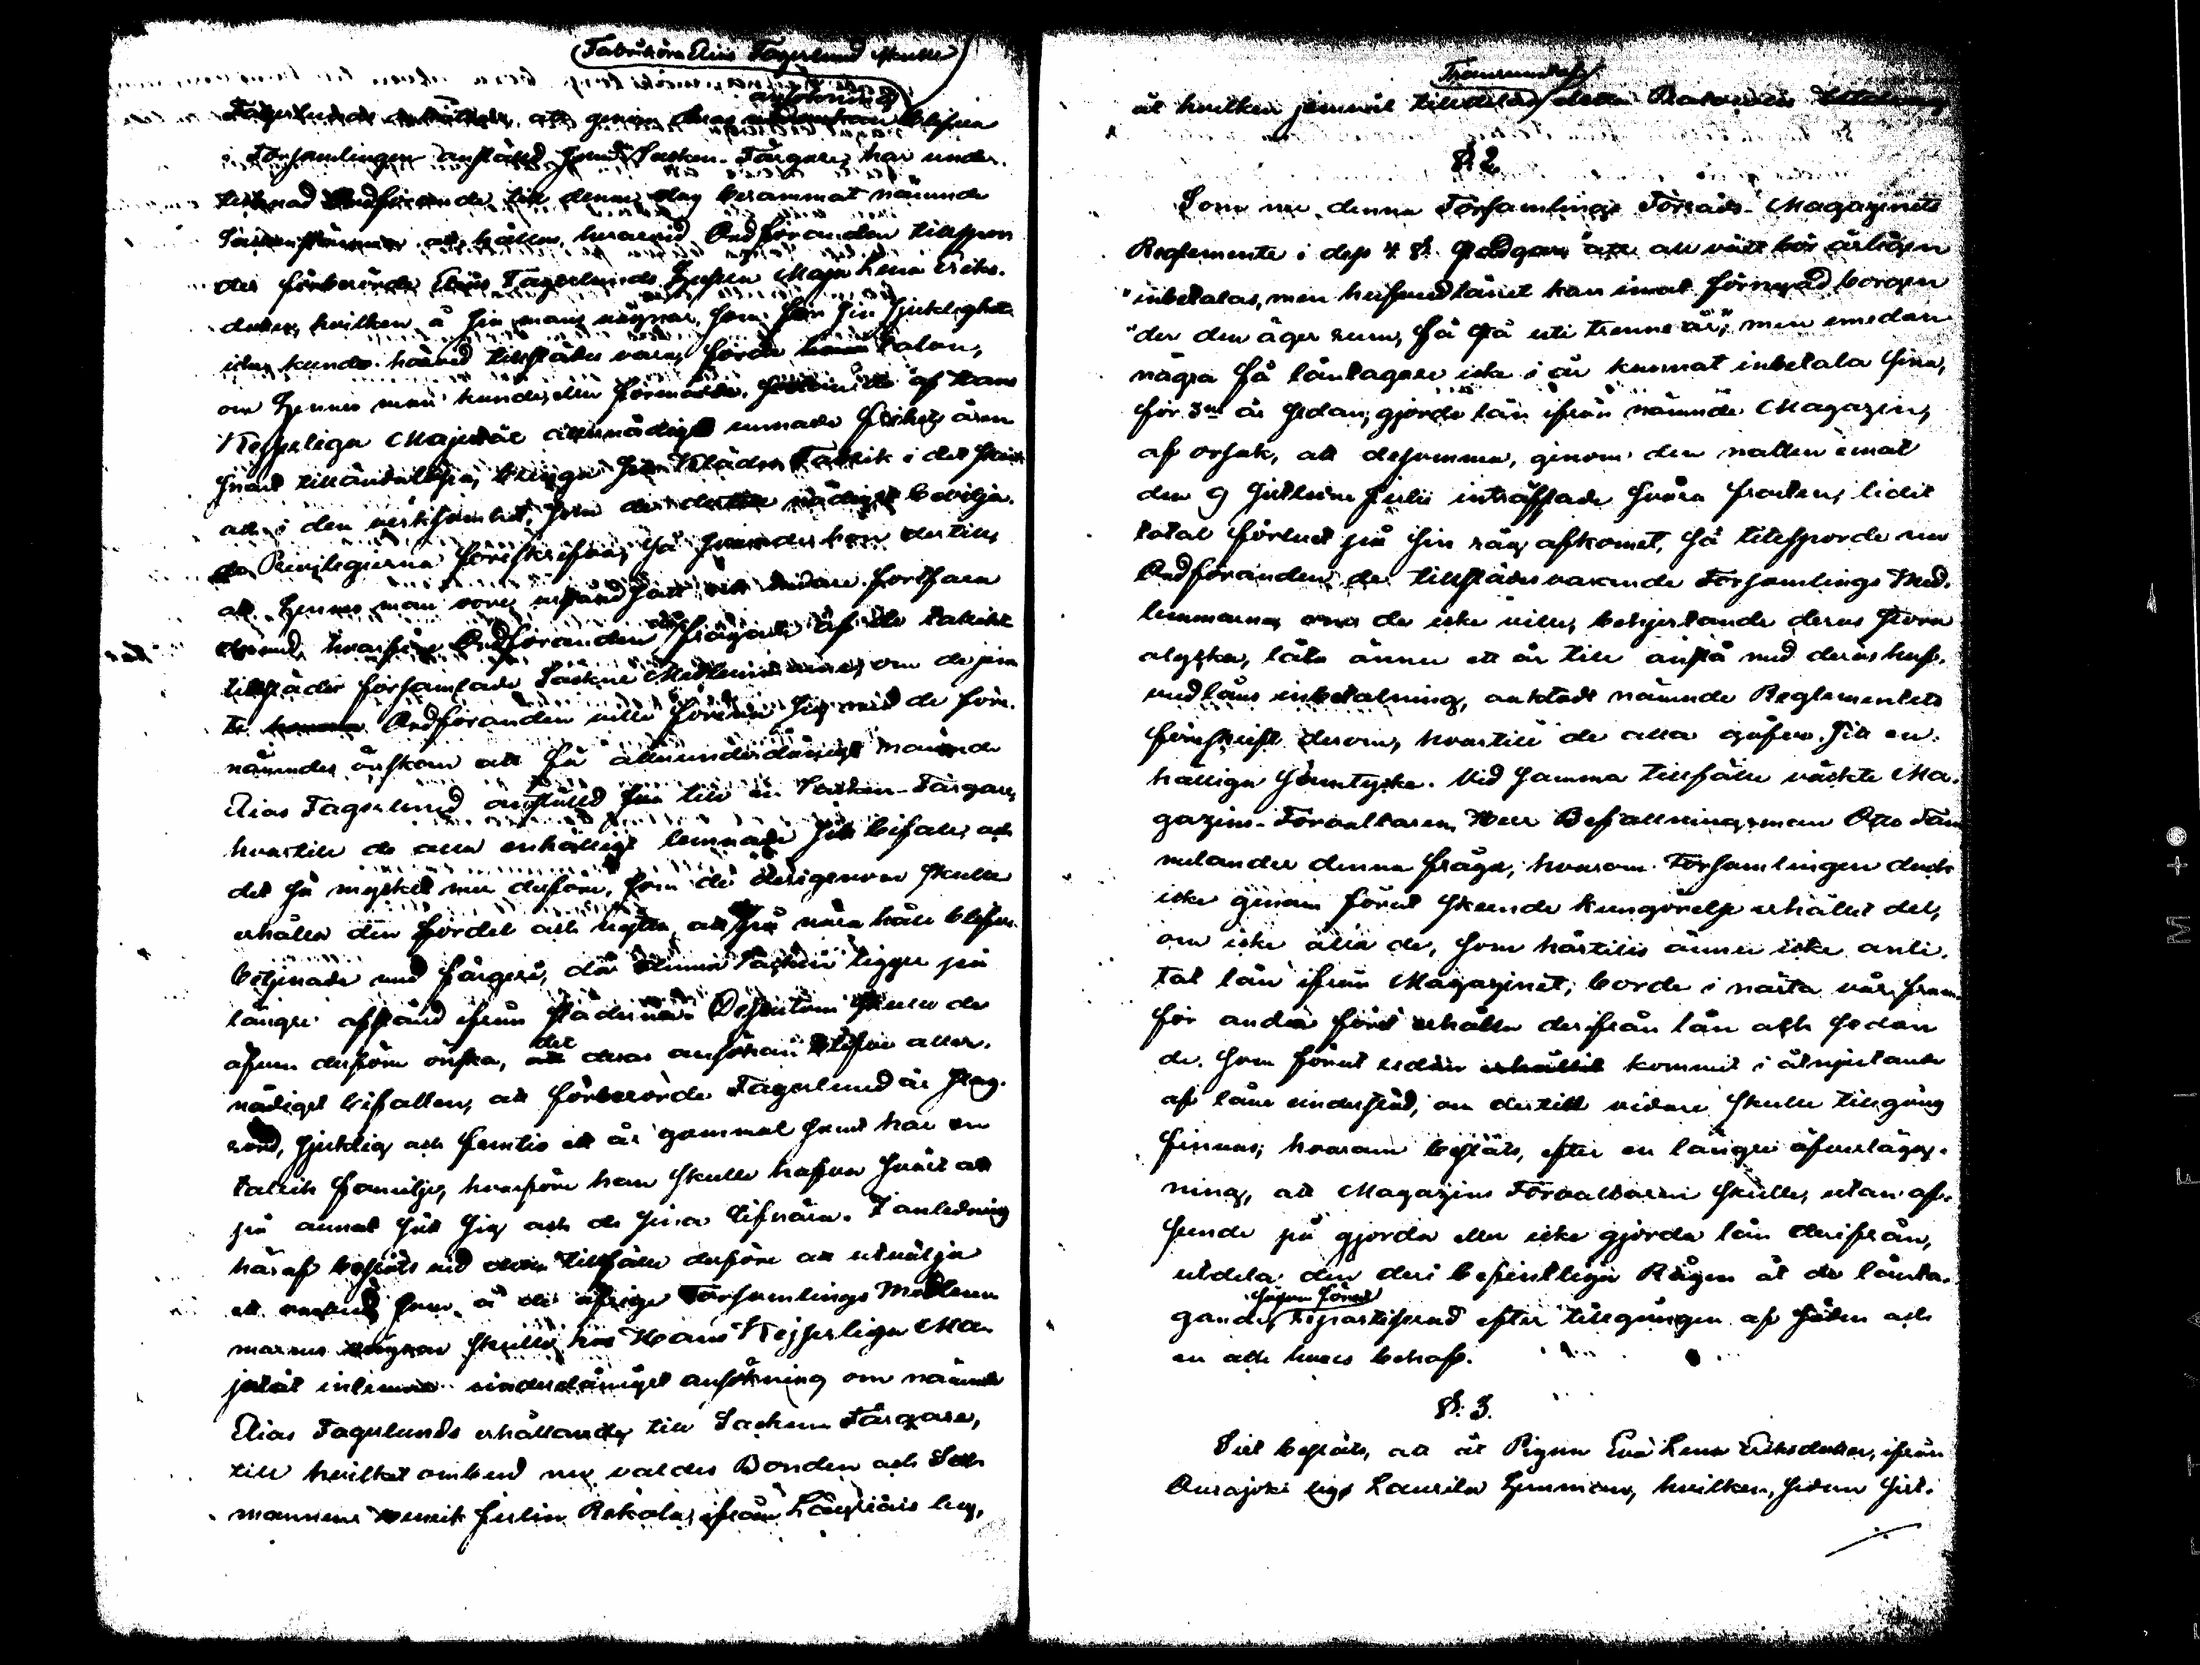 Fabrikören Elias Fagerlund skulle
ansökning
Fagerlunds att genom deras blifva
i Församlingen anstäld som Socken-Färgare, har under-
tecknad Ordförande till denna dag berammat nämnde
Sockenstämma att hållas, hvarvid Ordföranden tillspor-
des förberörde Elias Fagerlunds Hustru Maja Lena Eriks-
dotter, hvilken å sin mans vägnar, som för sin sjuklighet
icke kunde härvid tillstädes vara, förde talan,
om hennes man kunde eller förmådde af Hans
Kejserliga Majestät allernådigst unnade frihets åren
snart tilländalöpa, bringa sin Klädes Fabrik i det skick
och i den verksamhet, som de dertill nådigst bevilja-
de Privilegierna föreskrifva, så svarades hon dertill,
att hennes man vore urståndsatt att vidare fortfara
dermed, hvarföre Ordföranden frågade af de talrikt
tillstädes församlade Sockne Medlemmarne, om de jem-
te Ordföranden ville förena sig med de före-
nämndes önskan att få allerunderdånigst nämnde
Elias Fagerlund anstäld som till en Socken-Färgare,
hvartill de alla enhälligt lemnade sitt bifall, och
det så mycket mer derföre, som de derigenom skulle
erhålla den fördel och nytta, att på nära håll blifva
betjenade med färgeri, då denna Socken ligger på
längre afstånd ifrån städerna. Dessutom skulle de
äfven derföre önska, att deras ansökan blifver aller-
det
nådigst bifallen, att förberörde Fagerlund är
sjuklig och femtio ett år gammal samt har en
talrik familje, hvarföre han skulle hafva svårt att
på annat sätt sig och de sina lifnära. I anledning
häraf beslöts vid detta tillfälle derföre att utvälja
ett ombud, som å de öfrige Församlings Medlem-
marnes vägnar skulle hos Hans Kejserliga Ma-
jestät inlemna underdånigst ansökning om nämnde
Elias Fagerlunds erhållande till Socknens Färgare,
till hvilket ombud nu valdes Bonden och Sex-
mannen Henrik Juslin Rekola ifrån Långsiäis by,
Transumtet af
åt hvilken jemväl tilldelas detta Protocolls
§. 2.
Som nu denna Församlings Förråds-Magazinets
Reglemente i dess 4. §. stadgar "att all rätt bör årligen
"inbetalas, men hufvudlånet kan emot förnyad borgen
"der den äger rum, få stå uti trenne år;" men emedan
några få låntagare icke i år kunnat inbetala sina,
för 3ne år sedan, gjorde lån ifrån nämnde Magazin,
af orsak, att desamma, genom den natten emot
den 9 sistledne Julii inträffade svåra frosten, lidit
total förlust på sin råg afkomst, så tillsporde nu
Ordföranden de tillstädesvarande Församlings Med-
lemmarne, om de icke ville, behjertande deras stora
olycka, låta ännu ett år till anstå med deras huf-
vudlåns inbetalning, oaktadt nämnde Reglementets
föreskrift derom, hvartill de alla gåfvo sitt en-
hälliga samtycke. Vid samma tillfälle väckte Ma-
gazins-Förvaltaren, Herr Befallningsman Otto Tam-
melander denna fråga, hvarom Församlingen dock
icke genom förut skeende kungörelse erhållit del,
om icke alla de, som härtills ännu icke anli-
tat lån ifrån Magazinet, borde i nästa vår fram-
för andra först erhålla derifrån lån och sedan
de, som förut redan erhållit kommit i åtnjutande
af låne understöd, om dertill vidare skulle tillgång
finnas; hvarom beslöts, efter en längre öfverlägg-
ning, att Magazins Förvaltaren skulle, utan af-
seende på gjorda eller icke gjorda lån derifrån,
utdela den deri befintliga Rågen åt de lånta-
såsom förut
gande, repartiserad efter tillgången af säden och
en och hvars behof.
§. 3.
Sist beslöts, att åt Pigan Eva Lena Eriksdotter, ifrån
Aurajoki bys Laurila hemman, hvilken, sedan sist-